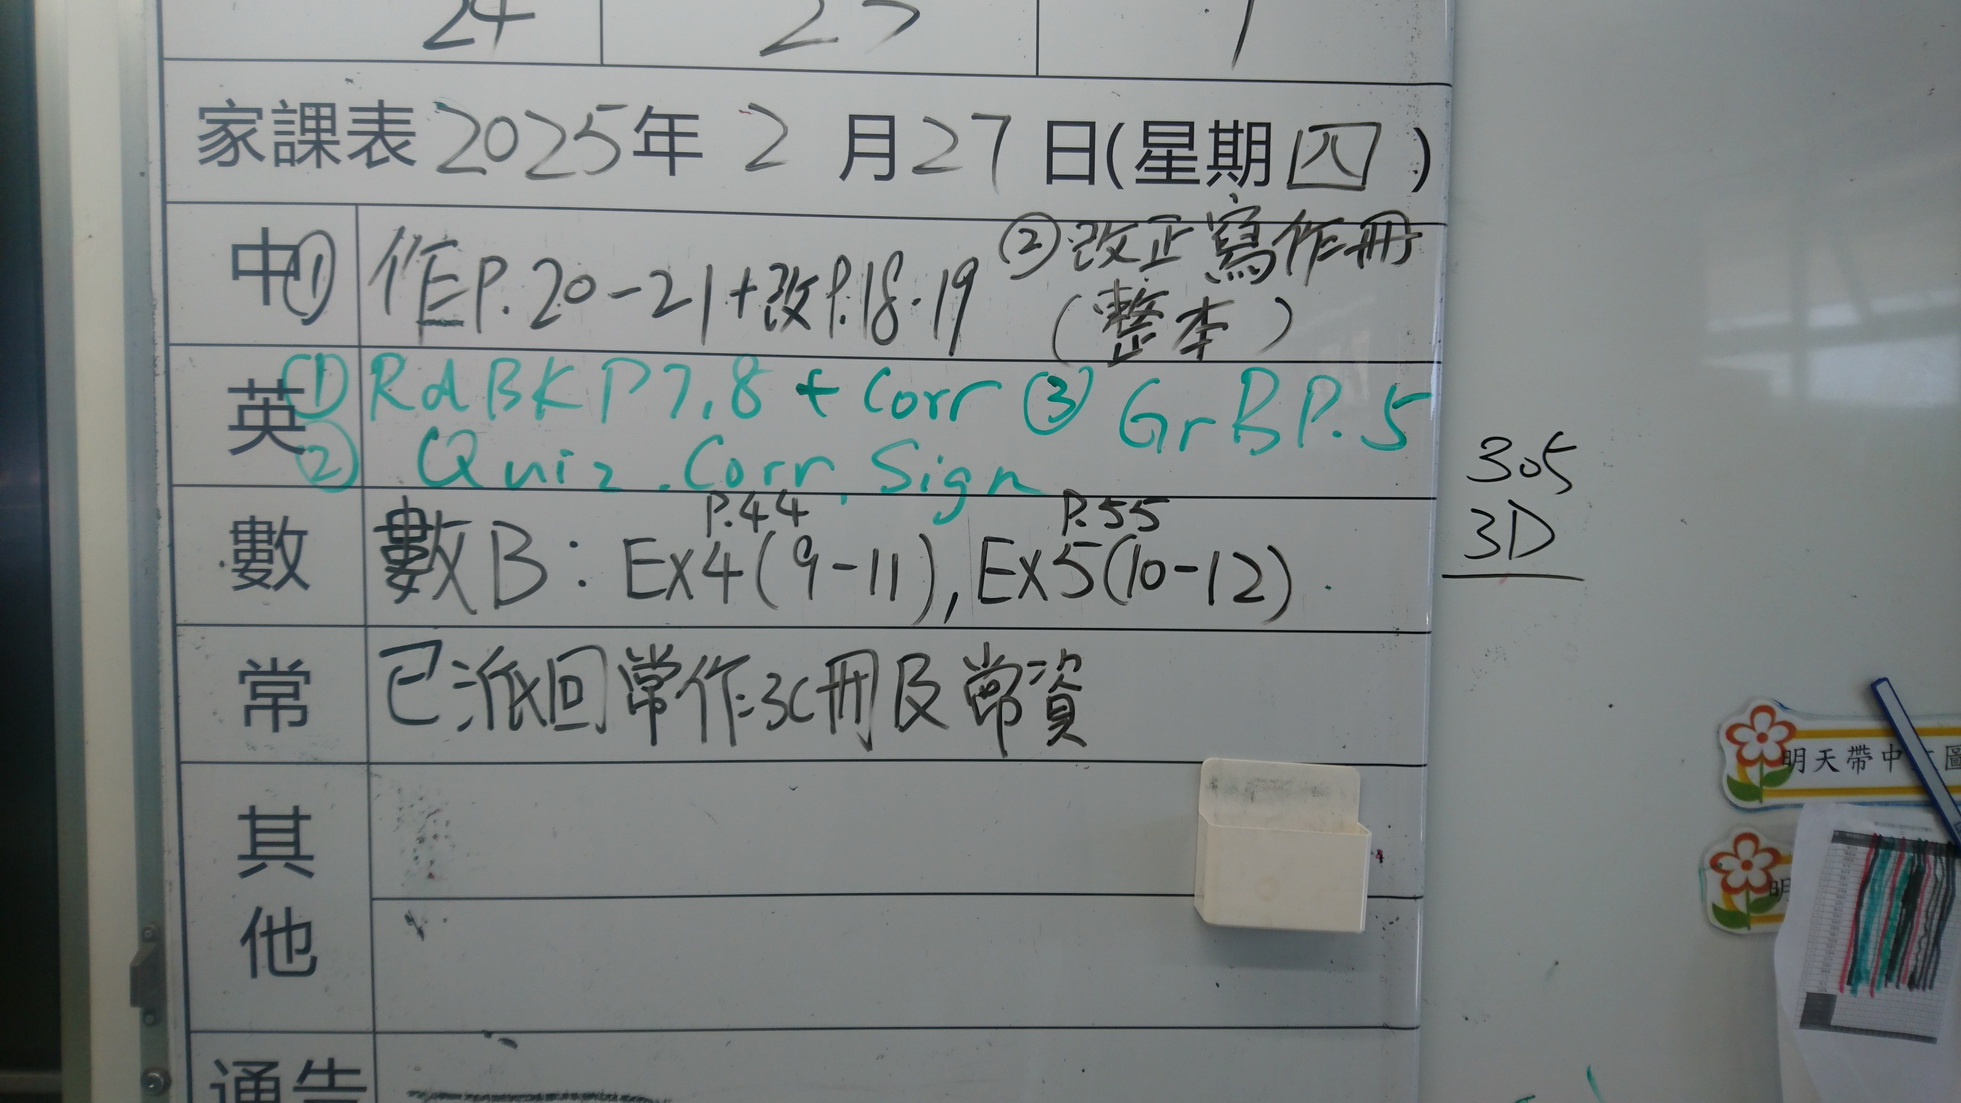 24 25 1
家課表2025年 2 月27日(星期四)
中 ① 作P.20-21+改P.18.19 ②改正寫作冊
(整本)
英 ① Rd BK P7,8 + Corr ③ GrB P.5
② Quiz. Corr. Sign
P.44 P.55
數 數B: Ex4(9-11), Ex5(10-12).
常 已派回常作3C冊及常資
其他
通告
305
3D
明天帶中
明